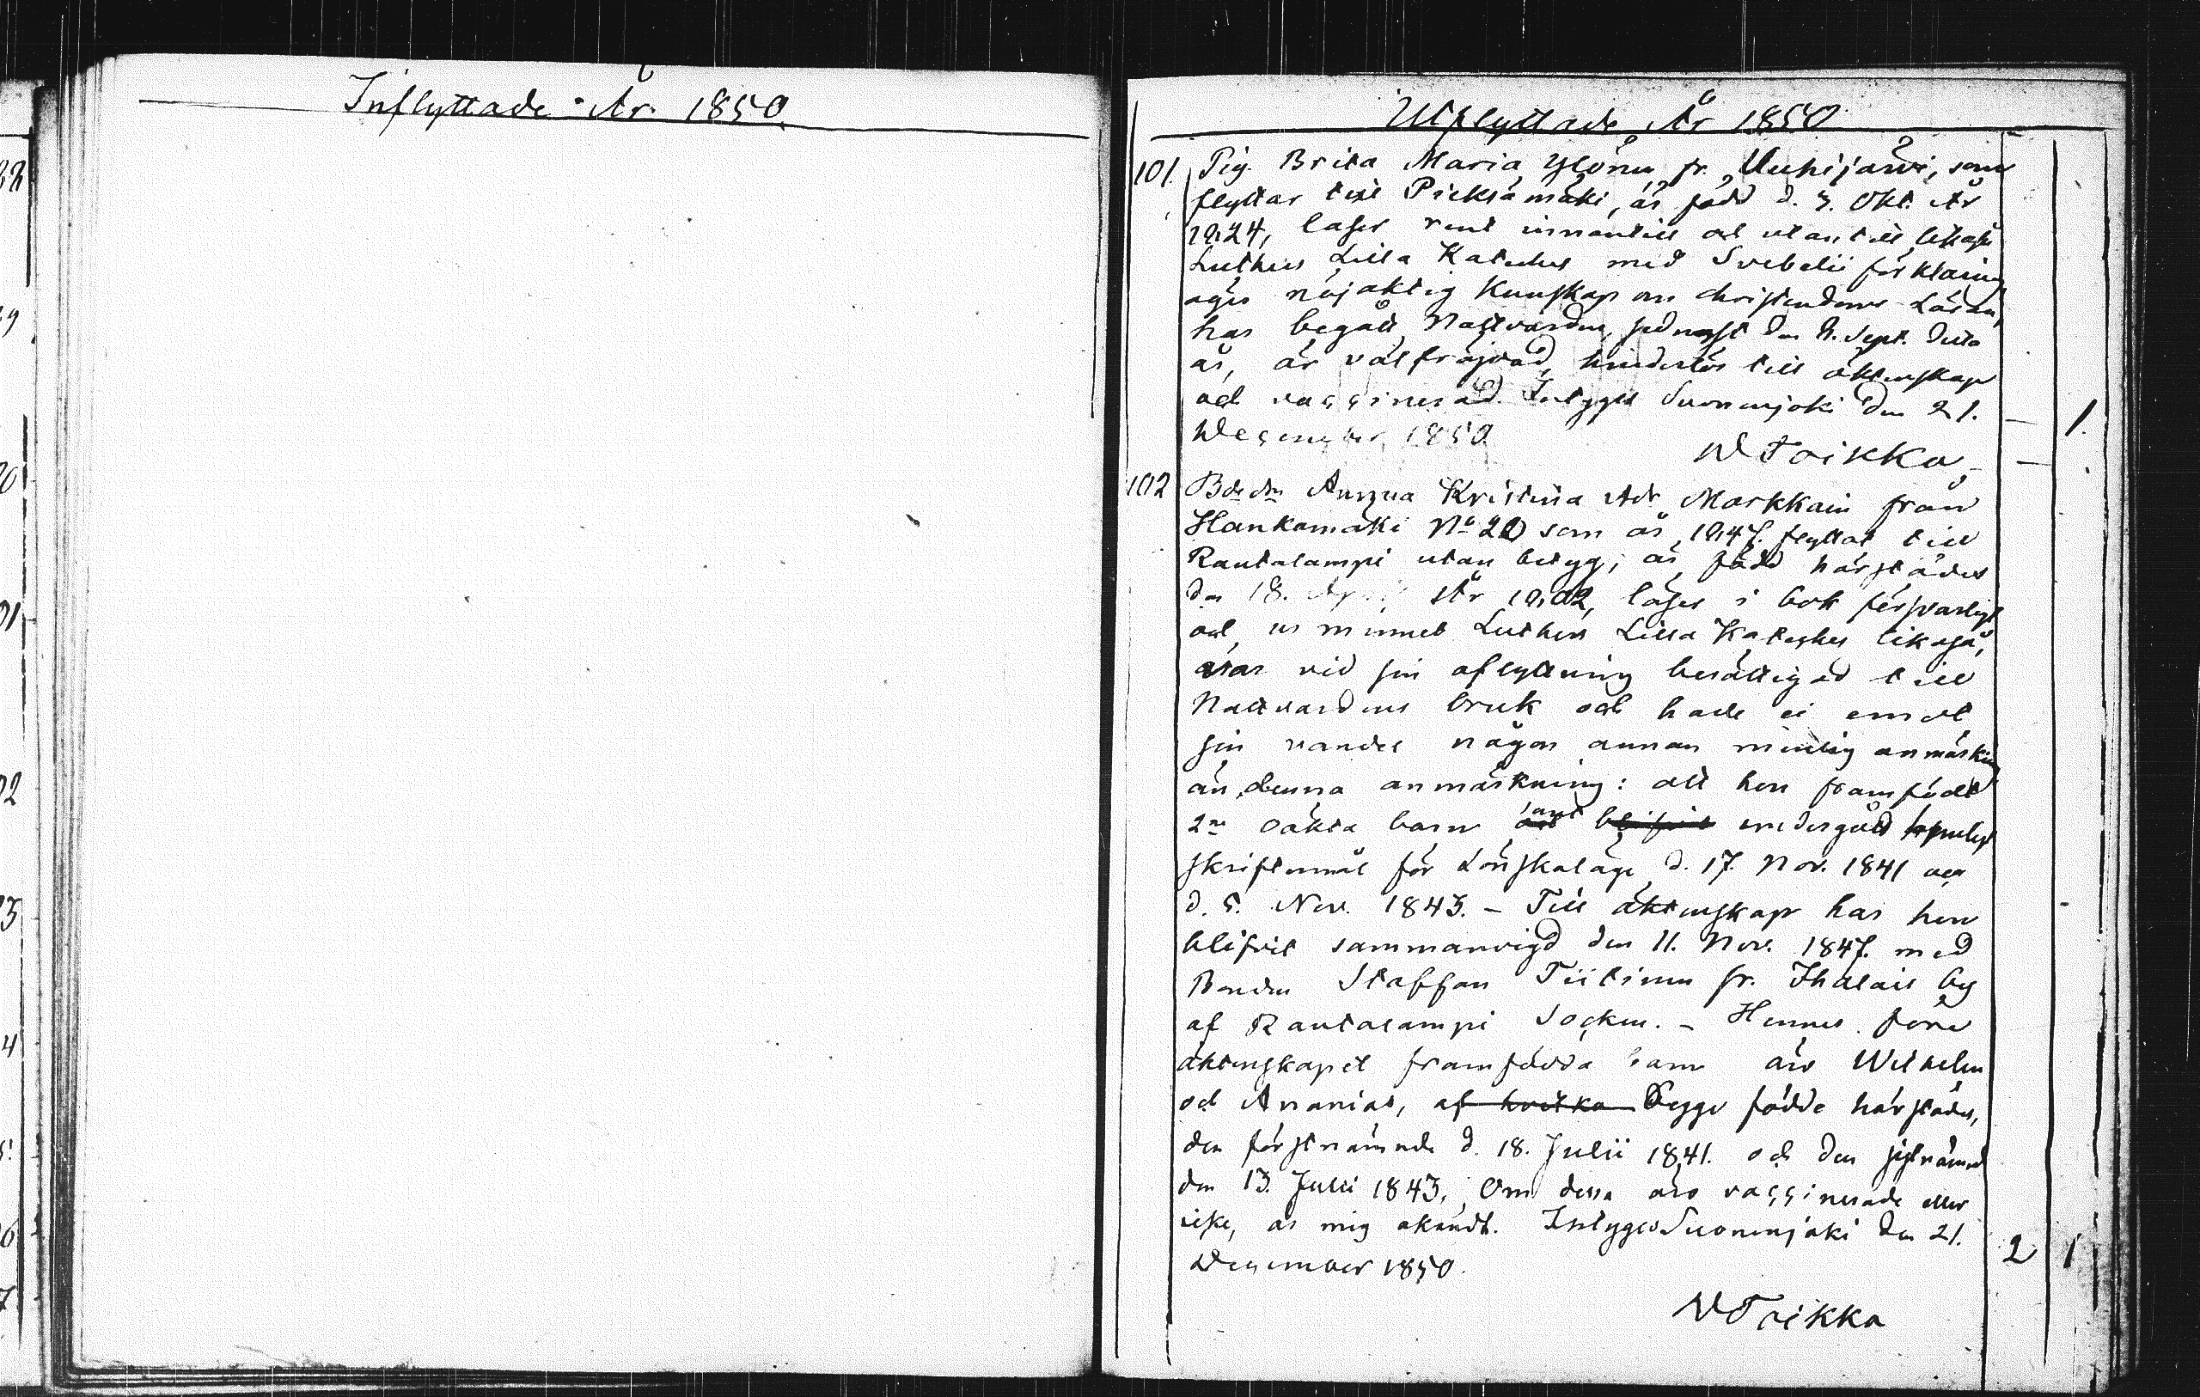 Inflyttade År 1850.
Utflyttade År 1850
101. Pig. Brita Maria Ylönen fr. Uuhijärvi, som
flyttar till Pieksämäki, är född d. 3. Okt. År
1824, läser rent innantill och utantill likaså
Luthers Lilla Kateches med Svebelii förklaring,
äger nöjaktig Kunskap om christendoms Läran,
har begått Nattvarden sednast den 8. Sept. detta
år, är välfräjdad, hinderlös till äktenskap
och vaccinerad. Intygas Suonenjoki den 21.
December 1850. — 1.
W Toikka —
102 Bde dtn Annna Kristina Adr Markkain från
Hankamäki No 20 som år 1847. flyttat till
Rautalampi utan betyg; är född härstädes
den 18. År 1802, läser i bok försvarligt
och ur minnet Luthers Lilla Kateches likaså,
var vid sin aflyttning berättigad till
Nattvardens bruk och hade ei emot
sin vandel någon annan menlig anmärkning
än denna anmärkning: att hon framfödt
2ne oäkta barn undergått
skriftermål för Lönskaläge d. 17. Nov. 1841 och
d. 5. Nov. 1843. – Till äktenskap har hon
blifvit sammanvigd den 11. Nov. 1847. med
Bonden Staffan Tiitinen fr. Ihalais by
af Rautalampi Socken. – Hennes före
äktenskapet framfödda barn äro Wilhelm
och Ananias, af hvilka begge födde härstädes,
den förstnämnde d. 18. Julii 1841. och den sistnämnd
den 13. Julii 1843. Om dessa äro vaccinerade eller
icke, är mig okändt. Intygas Suonenjoki den 21.
December 1850. 2 1
W Toikka